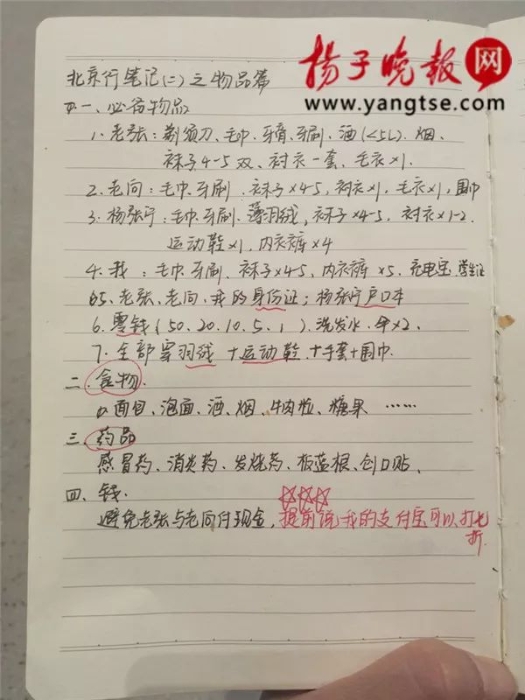 扬子晚报网
www.yangtse.com
北京行笔记(二)之物品篇
一、必备物品
1. 老张：剃须刀、毛巾、牙膏、牙刷、酒(<5L)、烟、
袜子4-5双、衬衣一套、毛衣×1.
2. 老向：毛巾.牙刷.袜子×4-5, 衬衣×1, 毛衣×1, 围巾
3. 杨张宁：毛巾.牙刷.薄羽绒, 袜子×4-5, 衬衣×1-2.
运动鞋×1, 内衣裤×4
4. 我：毛巾.牙刷.袜子×4-5, 内衣裤×5. 充电宝.学生证
5、老张、老向、我的身份证；杨张宁户口本
6. 零钱(50.20.10.5.1). 洗发水.伞×2.
7. 全部穿羽绒+运动鞋+手套+围巾.
二.食物.
面包、泡面、酒、烟、牛肉粒、糖果……
三.药品
感冒药、消炎药、发烧药、板蓝根、创口贴、
四、钱.
避免老张与老向付现金，提前说我的支付宝可以打七
折.